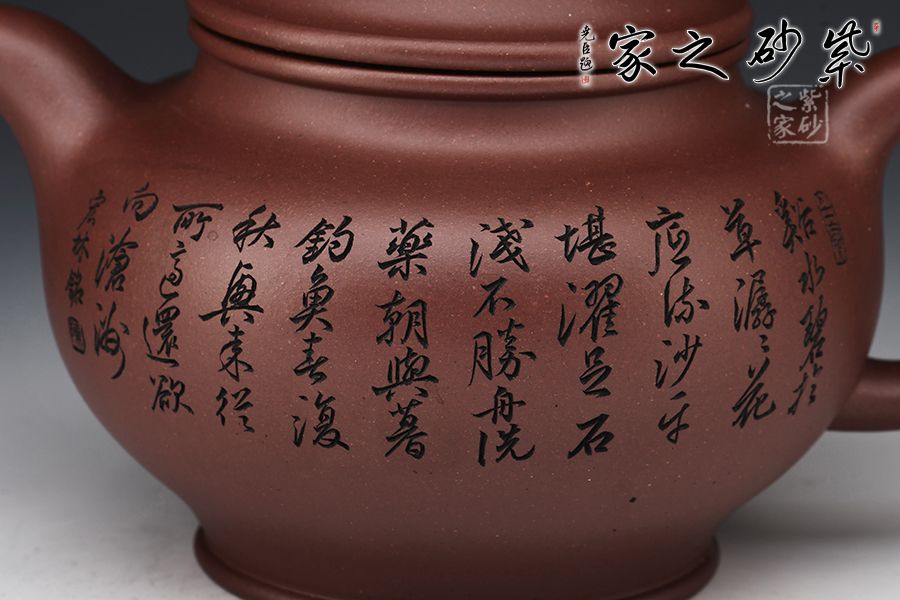 紫砂之家
堯臣題
紫砂之家
谿水碧於
草潺〻花
底流沙平
堪濯足石
淺不勝舟洗
藥朝與暮
釣魚春復
秋興来從
所適還欲
向滄洲
宏林銘